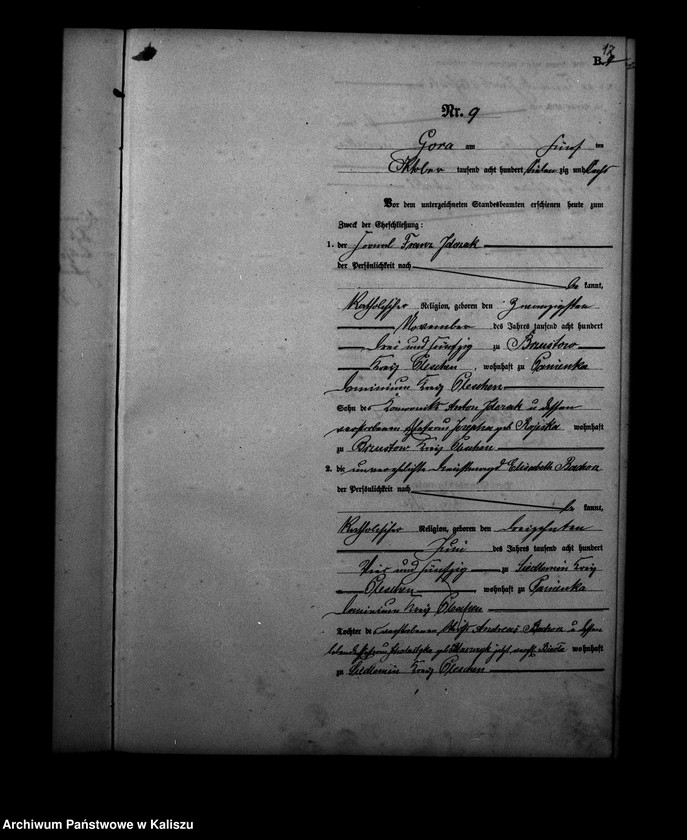 12
B.
Nr. 9
Gora am fünf ten
Oktober tausend acht hundert sieben zig und sechs
Vor dem unterzeichneten Standesbeamten erschienen heute zum
Zweck der Eheschließung:
1. der Fornal Franz Jdczak
der Persönlichkeit nach
be kannt,
Katholischer Religion, geboren den zwanzigsten
November des Jahres tausend acht hundert
drei und fünfzig zu Brzustow
Kreis Pleschen, wohnhaft zu Panienka
Dominium Kreis Pleschen
Sohn des Komorniks Anton Jdczak u dessen
verstorbenen Ehefrau Josepha geb. wohnhaft
zu Brzustow Kreis Pleschen
2. die unverehelichte Dienstmagd Elisabeth
der Persönlichkeit nach
be kannt,
Katholischer Religion, geboren den dreizehnten
Juni des Jahres tausend acht hundert
vier und fünfzig zu Siedlemin Kreis
Pleschen wohnhaft zu Panienka
Dominium Kreis Pleschen
Tochter des verstorbenen Andreas u dessen
geb. jetzt wohnhaft
zu Siedlemin Kreis Pleschen
Archiwum Państwowe w Kaliszu